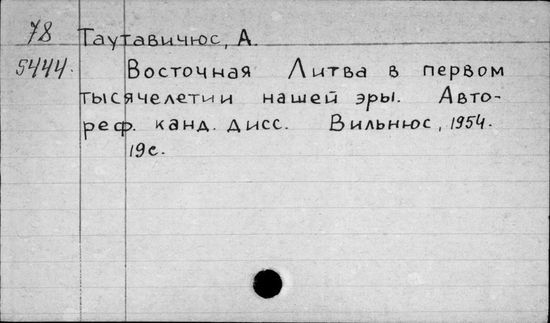 78 Таутавичюс, А.
5444. Восточная Литва в первом
тысячелетии нашей эры. Авто-
реф. канд. дисс. Вильнюс, 1954.
19с.